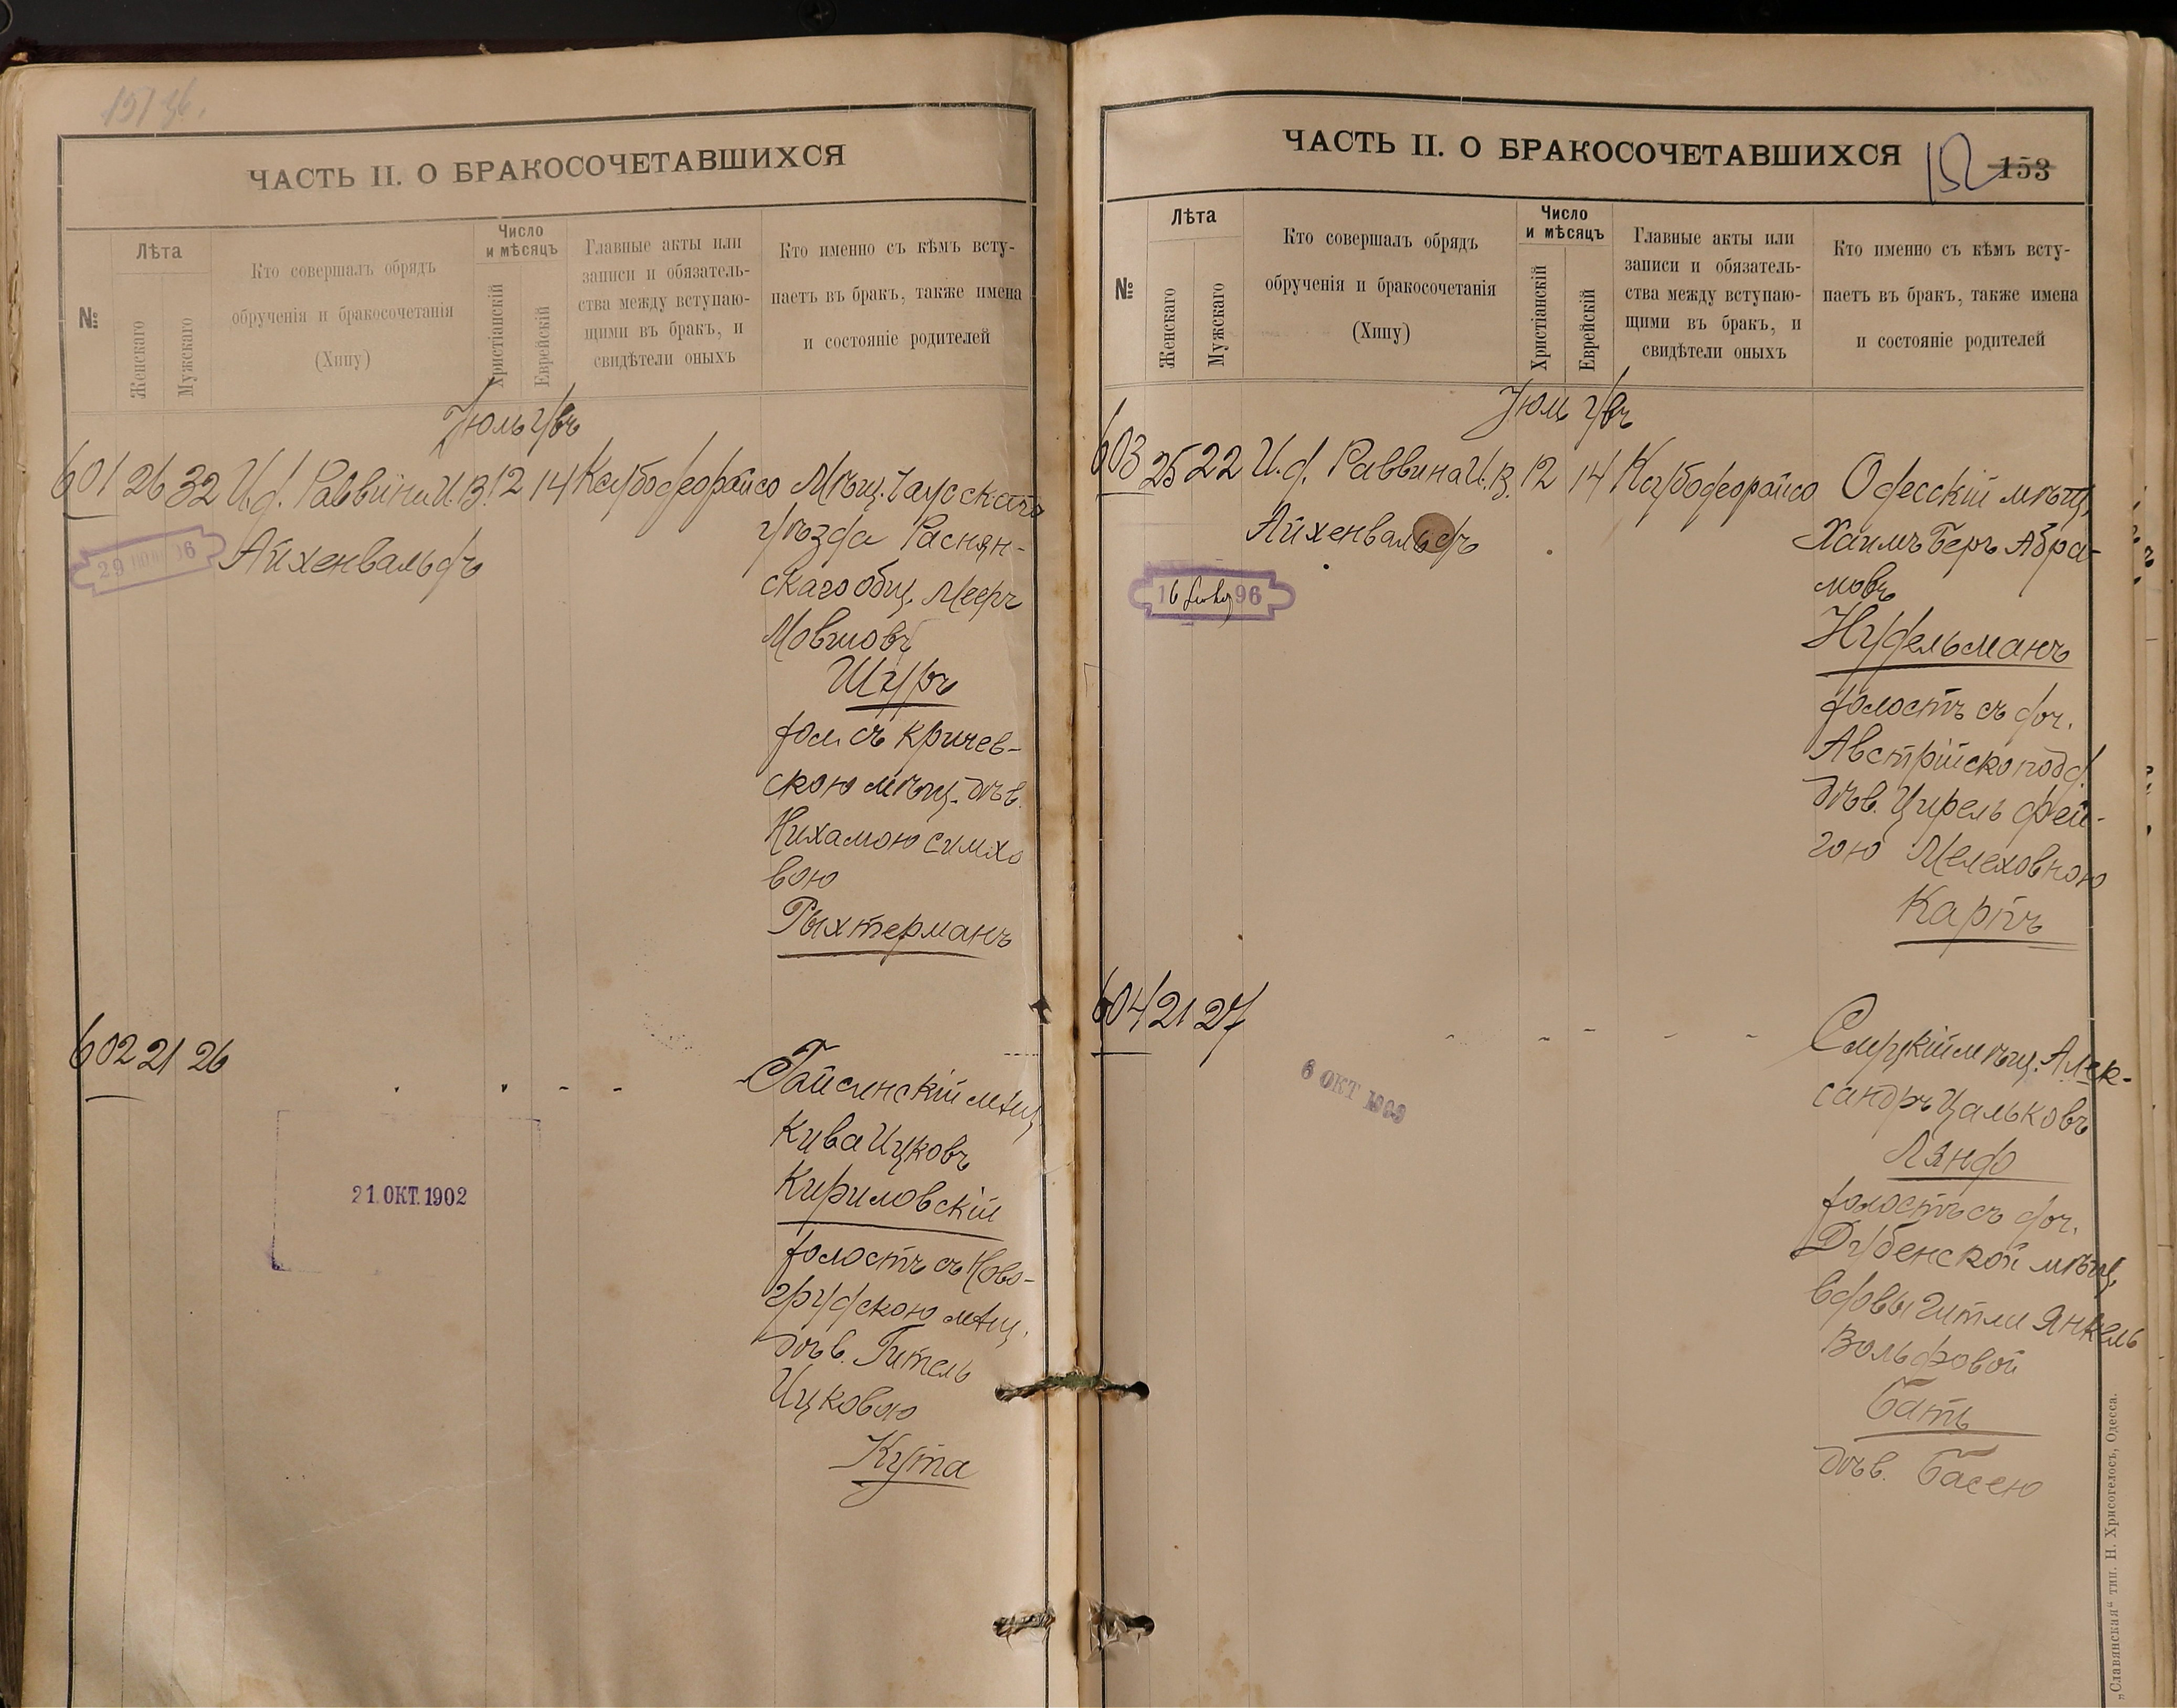 ЧАСТЬ II. О БРАКОСОЧЕТАВШИХСЯ
№
Лѣта
Женскаго
Мужскаго
Кто совершалъ обрядъ
обрученія и бракосочетанія
(Хипу)
Число
и мѣсяцъ
Христіанскій
Еврейскій
Главные акты или
записи и обязатель-
ства между вступаю-
щими въ бракъ, и
свидѣтели оныхъ
Кто именно съ кѣмъ всту-
паетъ въ бракъ, также имена
и состояніе родителей
601 26 32 И.д. Раввина И.В. 12 14 Мѣщ. Чаусскаго
Айхенвальдъ
уѣзда Раснян-
скаго общ. Мееръ
Мовшовъ
Шуръ
хол. съ Кричев-
скою мѣщ. дѣв.
Нихамою Симхо
вою
Рыхтерманъ
602 21 26
Гайсинскій мѣщ.
Кива Ицковъ
Кириловскій
холостъ съ Ново-
грудскою мѣщ.
дѣв. Гитель
Ицковою
Кута
21.ОКТ.1902
ЧАСТЬ II. О БРАКОСОЧЕТАВШИХСЯ
152 153
№
Лѣта
Женскаго
Мужскаго
Кто совершалъ обрядъ
обрученія и бракосочетанія
(Хипу)
Число
и мѣсяцъ
Христіанскій
Еврейскій
Главные акты или
записи и обязатель-
ства между вступаю-
щими въ бракъ, и
свидѣтели оныхъ
Кто именно съ кѣмъ всту-
паетъ въ бракъ, также имена
и состояніе родителей
603 25 22 И.д. Раввина И.В. 12 14 Одесскій мѣщ.
Айхенвальдъ
16 96
Хаимъ Беръ Абра-
мовъ
Нудельманъ
холостъ съ доч.
Австрійскоподд.
дѣв. Цирель Фей-
гою Мелеховною
Карпъ
604 21 27
Слуцкій мѣщ. Алек-
сандръ Цальковъ
Ландо
холостъ съ доч.
Дубенской мѣщ.
вдовы Гитли Янкель
Вольфовой
Бать
дѣв. Басею
6 ОКТ 1909
„Славянская“ тип. Н. Хрисогелосъ, Одесса.